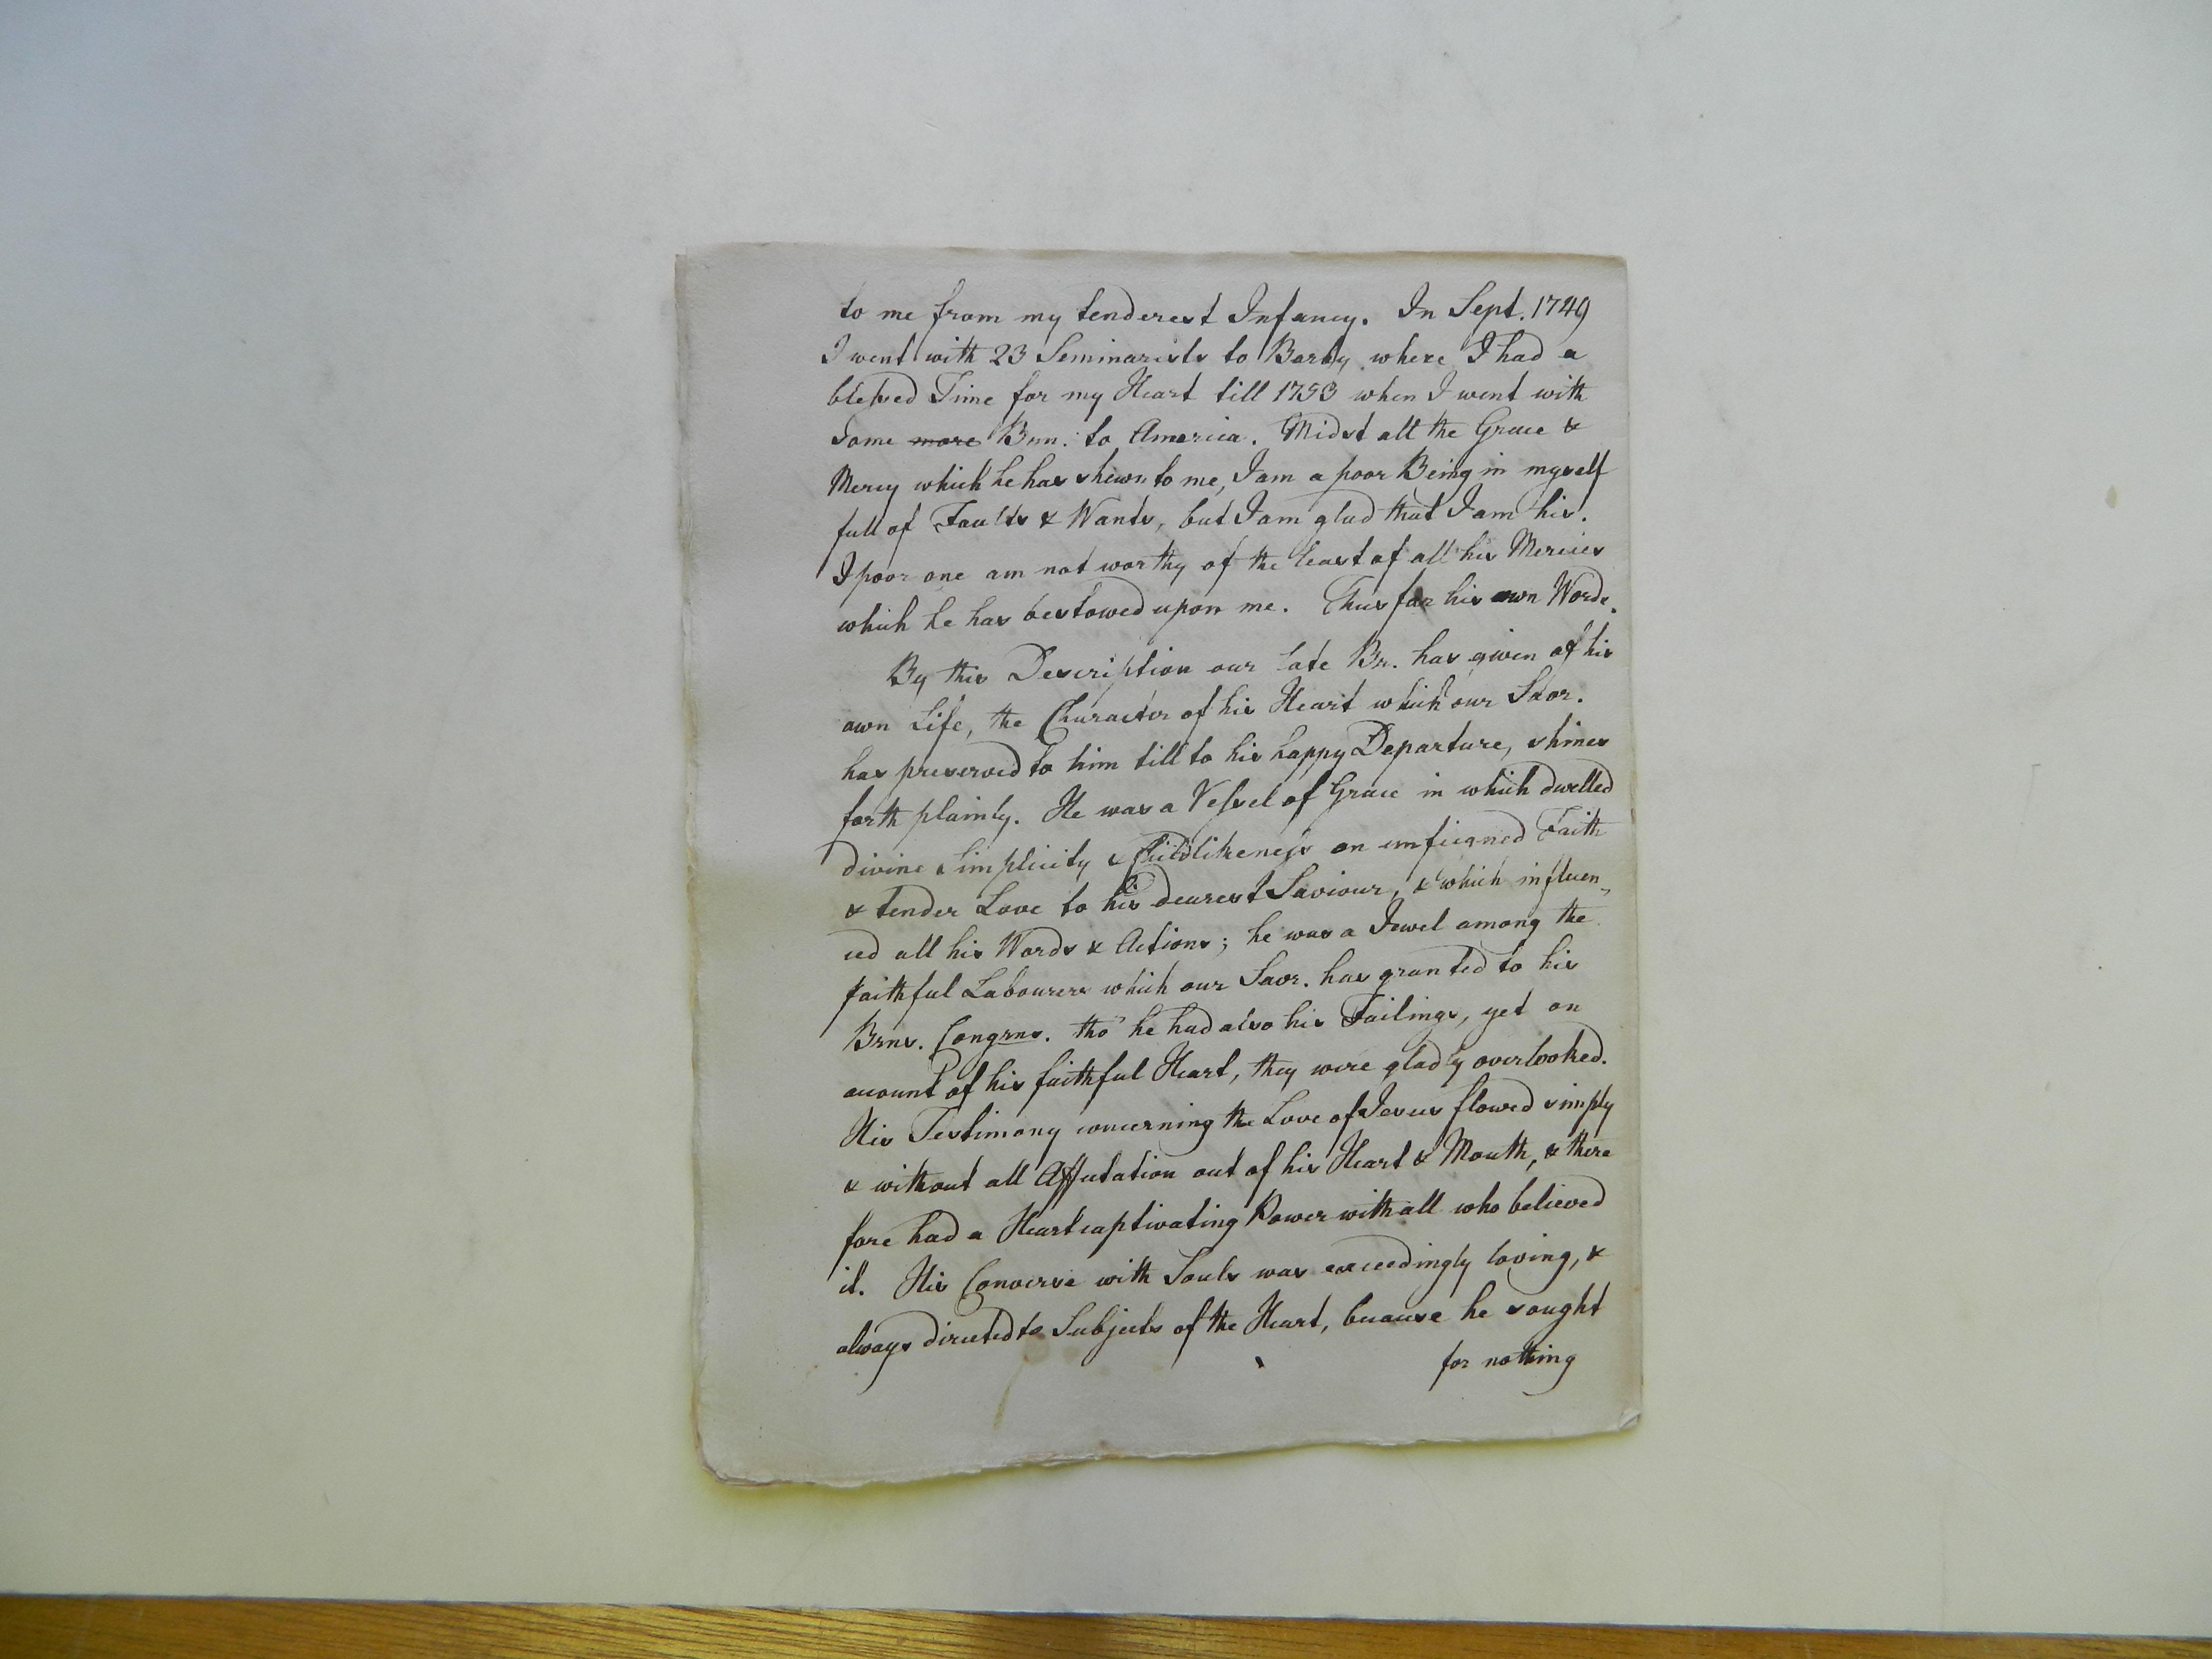 to me from my tenderest Infancy. In Sept. 1749
I went with 23 Seminarists to Barby where I had a
blessed Time for my Heart till 1753 when I went with
some more Brn. to America. Midst all the Grace &
Mercy which he has shewn to me, I am a poor Being in myself
full of Faults & Wants, but I am glad that I am his.
I poor one am not worthy of the least of all his Mercies
which he has bestowed upon me. Thus far his own Words.
By this Description our late Br. has given of his
own Life, the Character of his Heart which our Saor.
has preserved to him till to his happy Departure, shines
forth plainly. He was a Vessel of Grace in which dwelled
divine Simplicity & Childlikeness an unfeigned Faith
& tender Love to his dearest Saviour, & which influen„
ced all his Words & Actions; he was a Jewel among the
faithful Labourers which our Saor. has granted to his
Brns. Congrns. tho' he had also his Failings, yet on
account of his faithful Heart, they were gladly overlooked.
His Testimony concerning the Love of Jesus flowed simply
& without all Affectation out of his Heart & Mouth, & there
fore had a Heartcaptivating Power with all who believed
it. His Converse with Souls was exceedingly loving, &
always directed to Subjects of the Heart, because he sought
for nothing